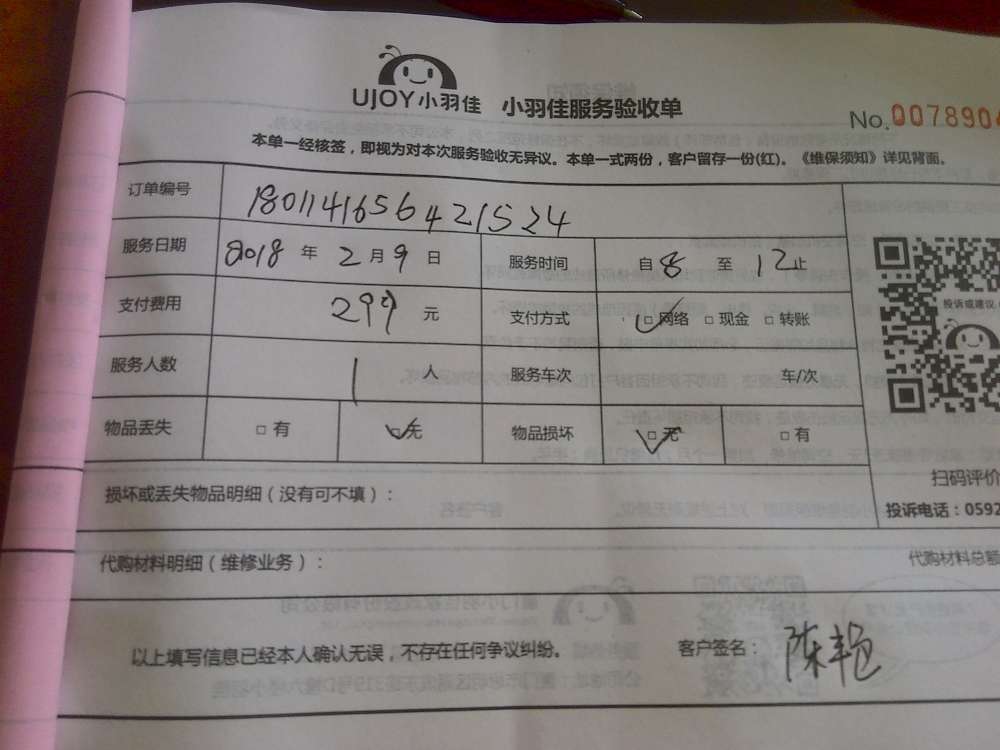 UJOY小羽佳 小羽佳服务验收单
No.0078904
本单一经核签，即视为对本次服务验收无异议。本单一式两份，客户留存一份(红)。《维保须知》详见背面。
订单编号 180114165642１524
服务日期 2018 年 2 月 9 日 服务时间 自 8 至 12 止
支付费用 299 元 支付方式 □网络 □现金 □转账
投诉或建议
服务人数 1 人 服务车次 车/次
物品丢失 □有 □无 物品损坏 □无 □有
扫码评价
损坏或丢失物品明细（没有可不填）：
投诉电话：0592
代购材料明细（维修业务）：
代购材料总额
以上填写信息已经本人确认无误，不存在任何争议纠纷。 客户签名：陈艳